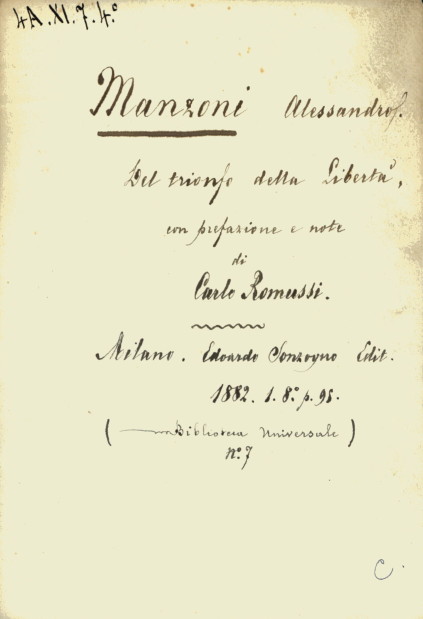 4A.XI.7.4.°
Manzoni Alessandro.
Del trionfo della Libertà,
con prefazione e note
di
Carlo Romussi.
Milano. Edoardo Sonzogno Edit.
1882. 1. 8.° p. 95.
( Biblioteca Universale )
n.° 7
C.